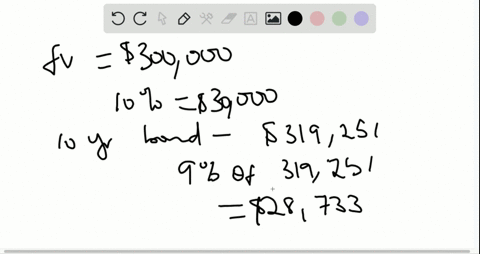 fv = $300,000
10% = $30,000
10 yr bond - $319,251
9% of 319,251
= $28,733